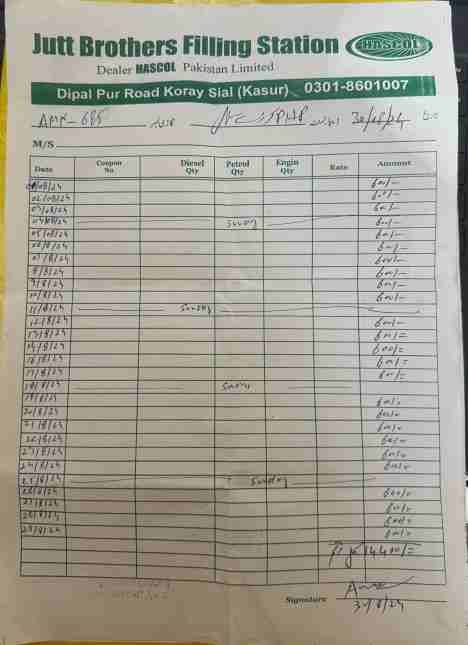 Jutt Brothers Filling Station
HASCOL
Dealer HASCOL Pakistan Limited
Dipal Pur Road Koray Sial (Kasur) 0301-8601007
M/S
Date Coupon No Diesel Qty Petrol Qty Engin Qty Rate Amount
01/08/24 600/-
02/08/24 600/-
03/08/24 600/-
04/08/24 Sunday 600/-
05/08/24 600/-
06/8/24 600/-
07/8/24 600/-
8/8/24 600/-
9/8/24 600/-
10/8/24 600/-
11/8/24 Sunday
12/8/24 600/-
13/8/24 600/=
15/8/24 600/=
16/8/24 600/=
17/8/24 600/=
18/8/24 Sunday
19/8/24 600/=
20/8/24 600/=
21/8/24 600/=
22/8/24 600/=
23/8/24 600/=
24/8/24 600/=
25/8/24 Sunday
26/8/24 600/=
27/8/24 600/=
28/8/24 600/=
29/8/24 600/=
14400/=
Signature